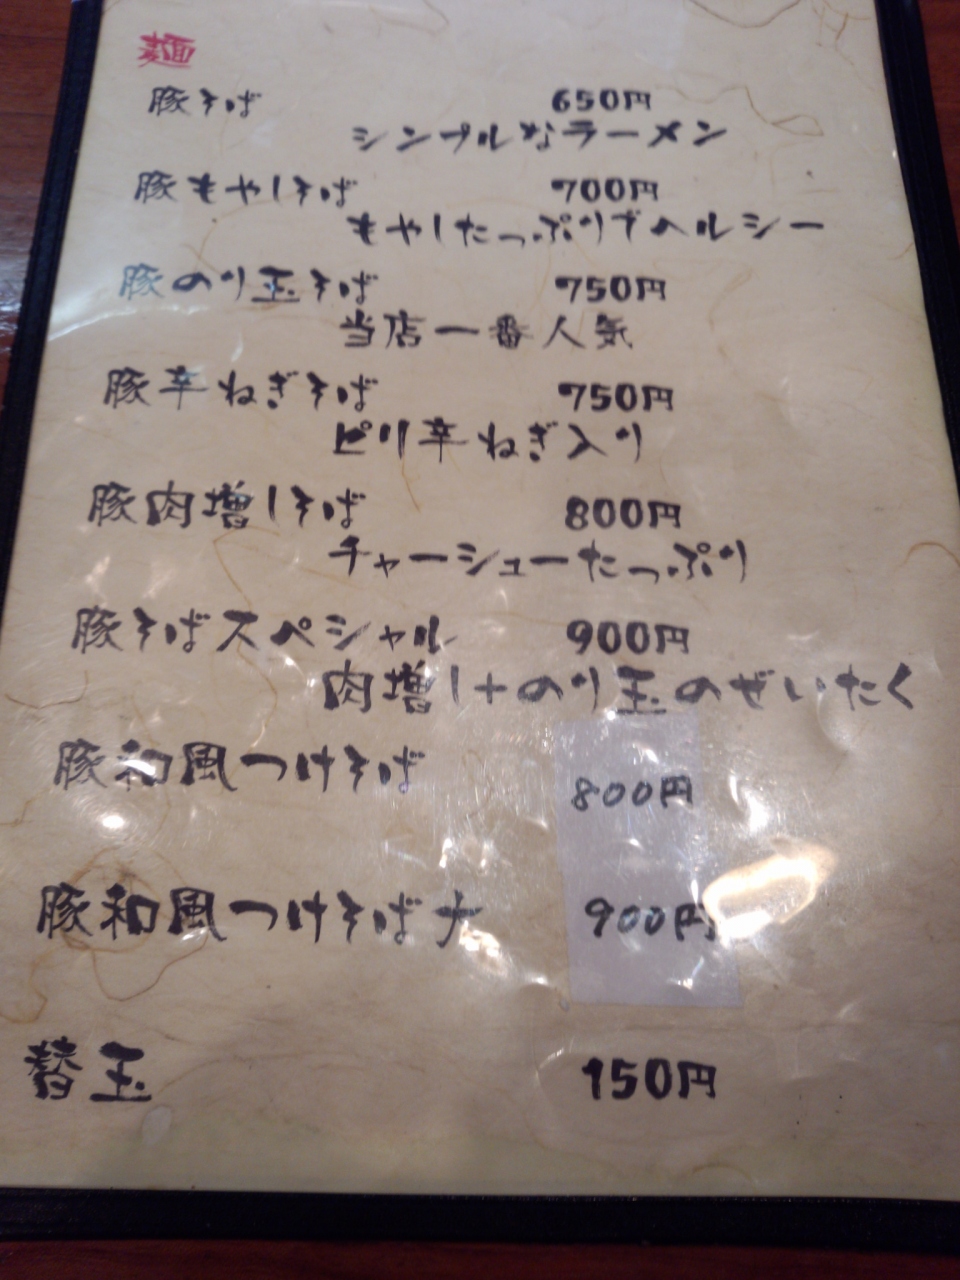 麺
豚そば 650円
シンプルなラーメン
豚もやしそば 700円
もやしたっぷりでヘルシー
豚のり玉そば 750円
当店一番人気
豚辛ねぎそば 750円
ピリ辛ねぎ入り
豚肉増しそば 800円
チャーシューたっぷり
豚そばスペシャル 900円
肉増し+のり玉のぜいたく
豚和風つけそば 800円
豚和風つけそば大 900円
替玉 150円